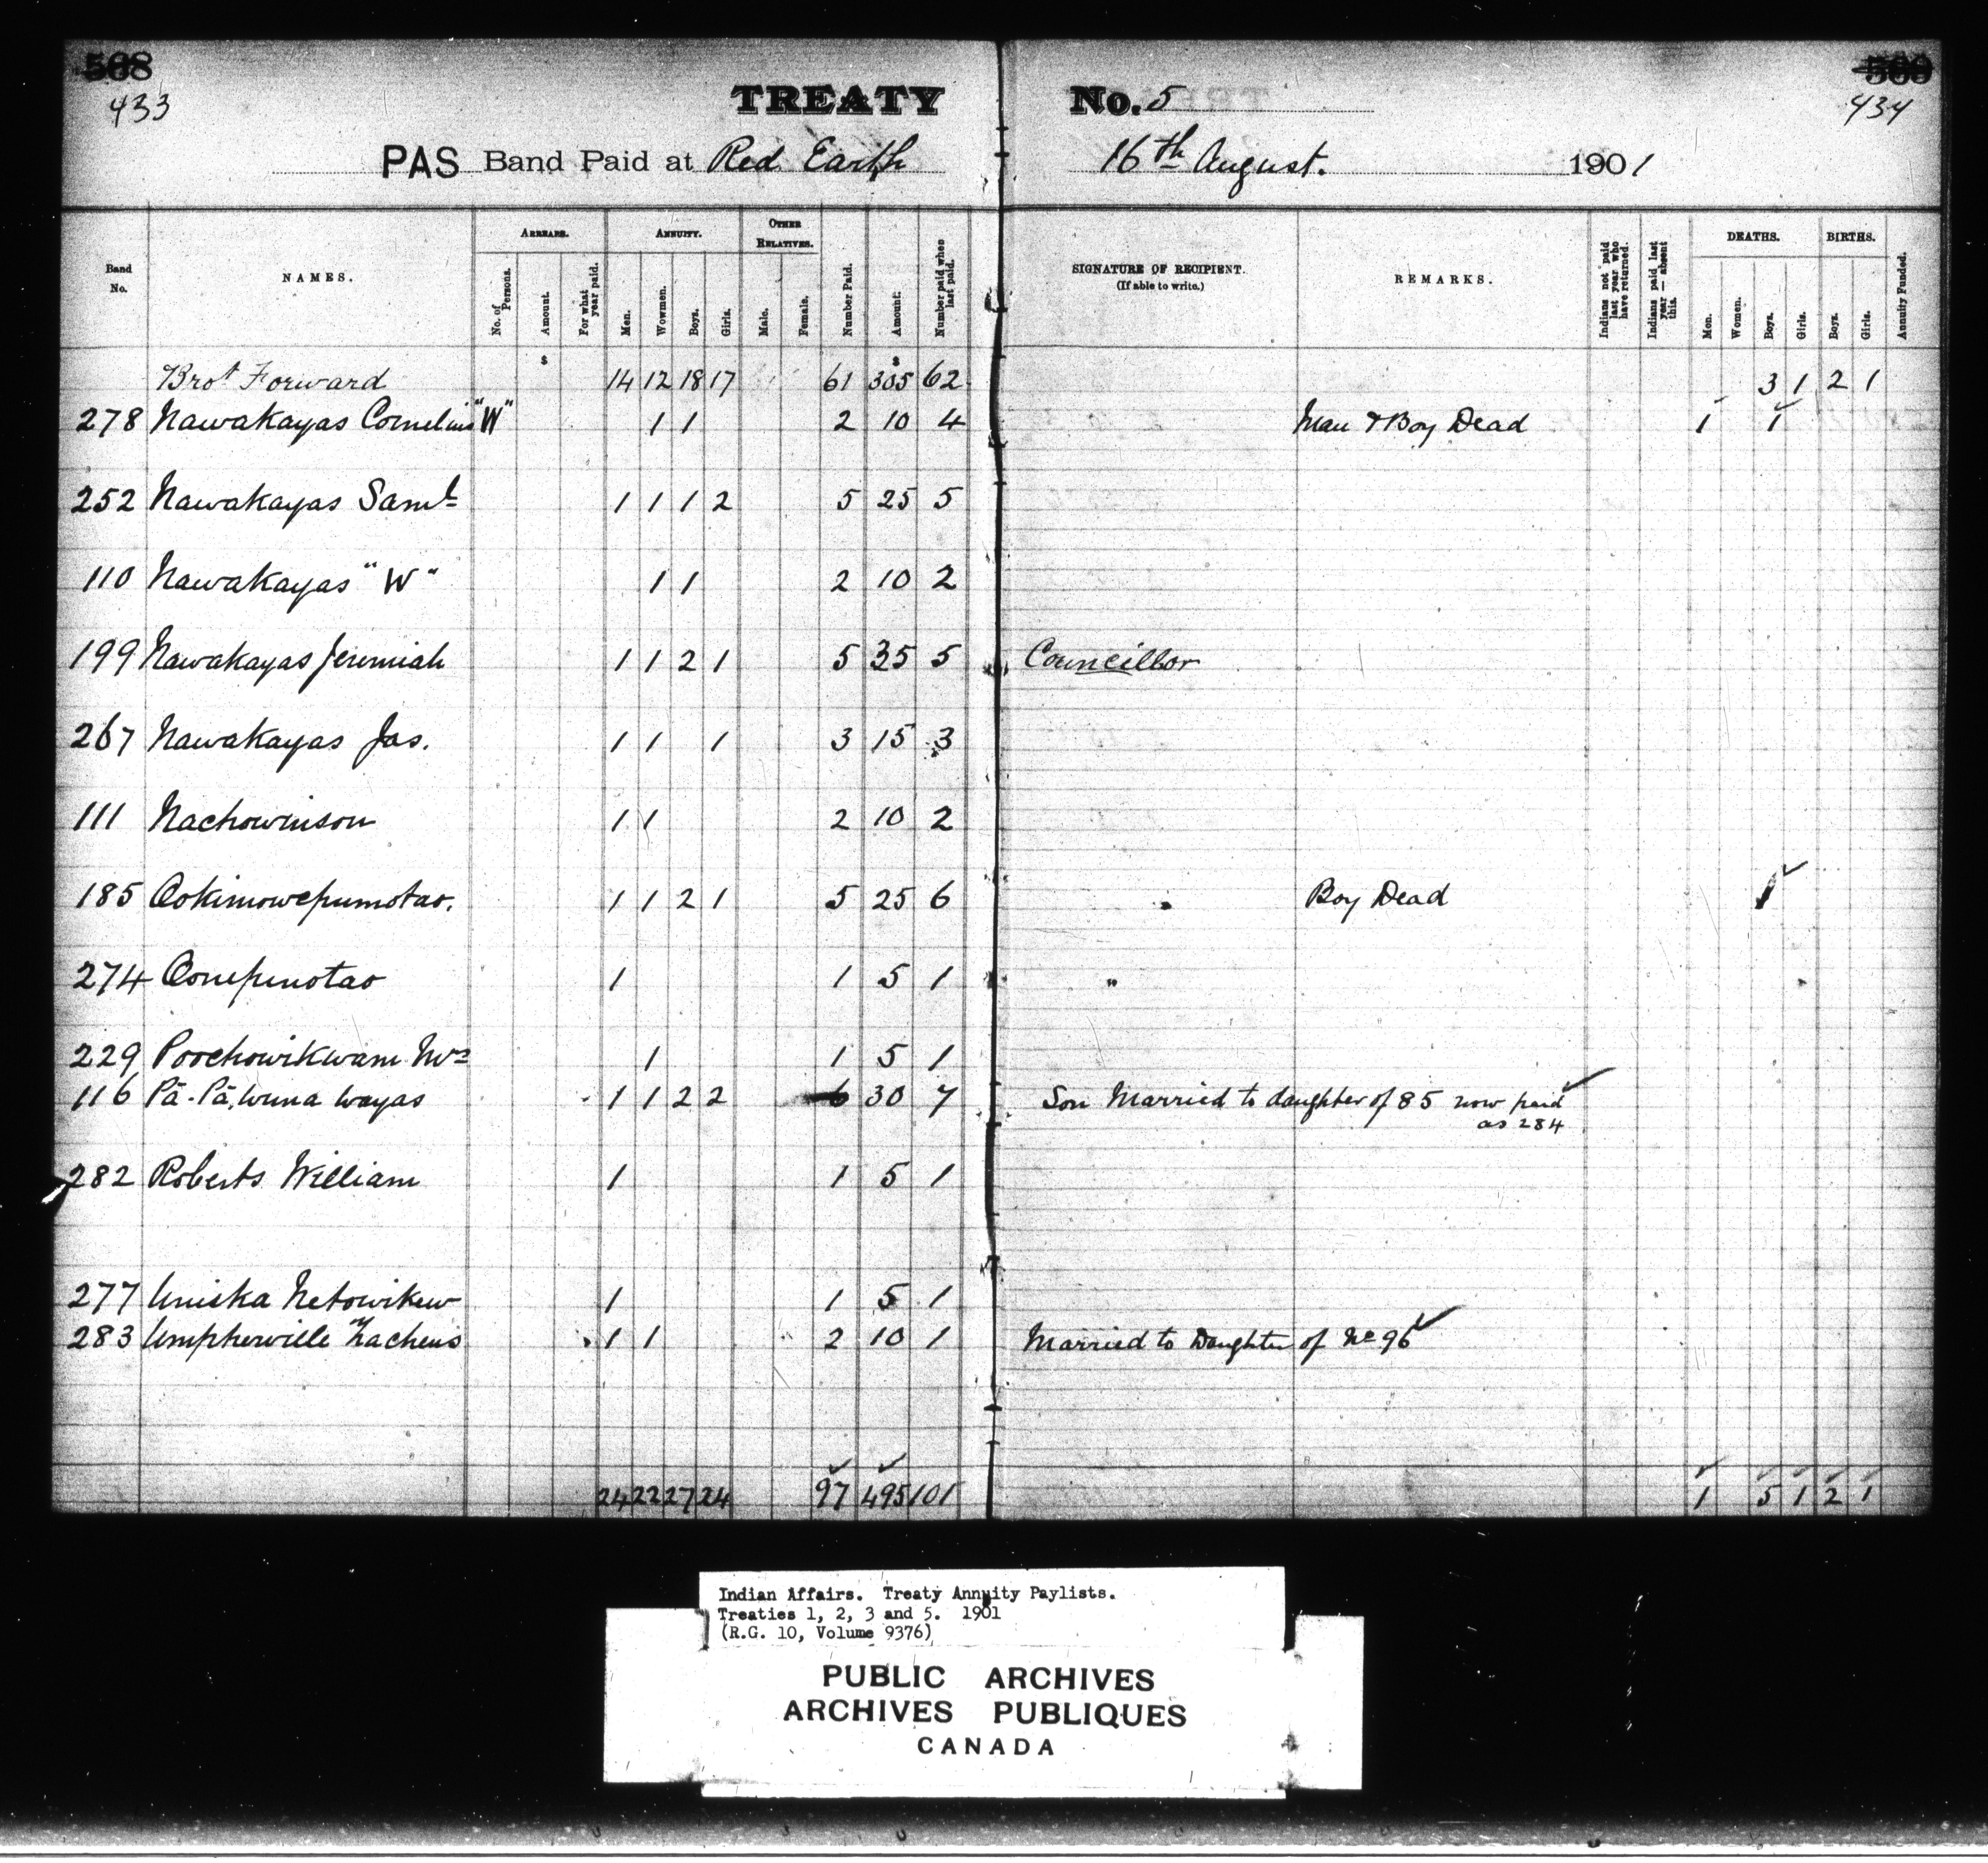 568 569
433 434
TREATY No. 5
PAS Band Paid at Red Earth 16th August. 1901
Band No. NAMES. ARREARS. No. of Persons. Amount. For what year paid. ANNUITY. Men. Wowmen. Boys. Girls. OTHER RELATIVES. Male. Female. Number Paid. Amount. Number paid when last paid. SIGNATURE OF RECIPIENT. (If able to write.) REMARKS. Indians not paid last year who have returned. Indians paid last year — absent this. DEATHS. Men. Women. Boys. Girls. BIRTHS. Boys. Girls. Annuity Funded.
$ $
Brot Forward 14 12 18 17 61 305 62 3 1 2 1
278 Nawakayas Cornelius "W" 1 1 2 10 4 Man & Boy Dead 1 1
252 Nawakayas Saml 1 1 1 2 5 25 5
110 Nawakayas "W" 1 1 2 10 2
199 Nawakayas Jeremiah 1 1 2 1 5 35 5 Councillor
267 Nawakayas Jas. 1 1 1 3 15 3
111 Nachowinson 1 1 2 10 2
185 Ookimowepumotao. 1 1 2 1 5 25 6 Boy Dead 1
274 Oonepinotao 1 1 5 1 "
229 Poochowikwam Mrs 1 1 5 1
116 Pā-Pā,wuna wayas 1 1 2 2 6 30 7 Son Married to daughter of 85 now paid
as 284
282 Roberts William 1 1 5 1
277 Uniska Netowikew 1 1 5 1
283 Umpherville Zacheus 1 1 2 10 1 Married to Daughter of No 96
24 22 27 24 97 495 101 1 5 1 2 1
Indian Affairs. Treaty Annuity Paylists.
Treaties 1, 2, 3 and 5. 1901
(R.G. 10, Volume 9376)
PUBLIC ARCHIVES
ARCHIVES PUBLIQUES
CANADA